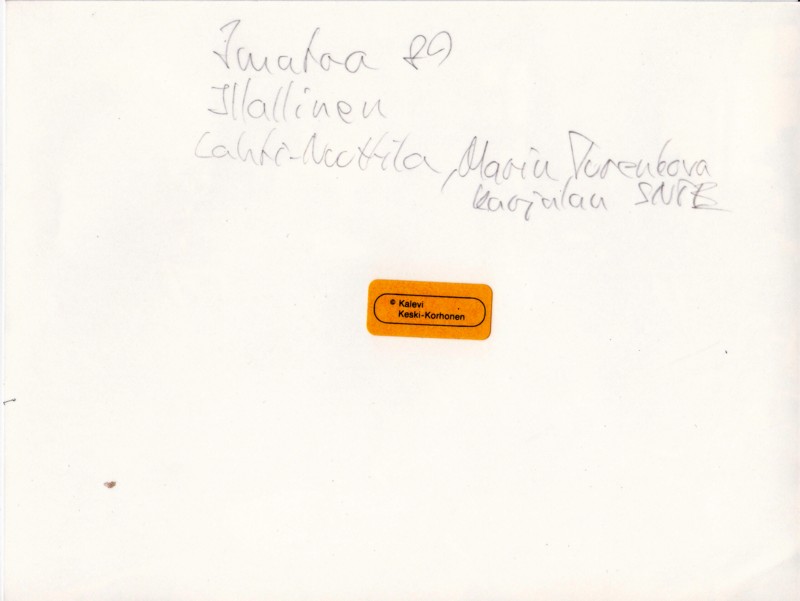 Imatra 89
Illallinen
Lahti-Nuottila, Marin Turenkova
Karjalan SNTL
© Kalevi
Keski-Korhonen